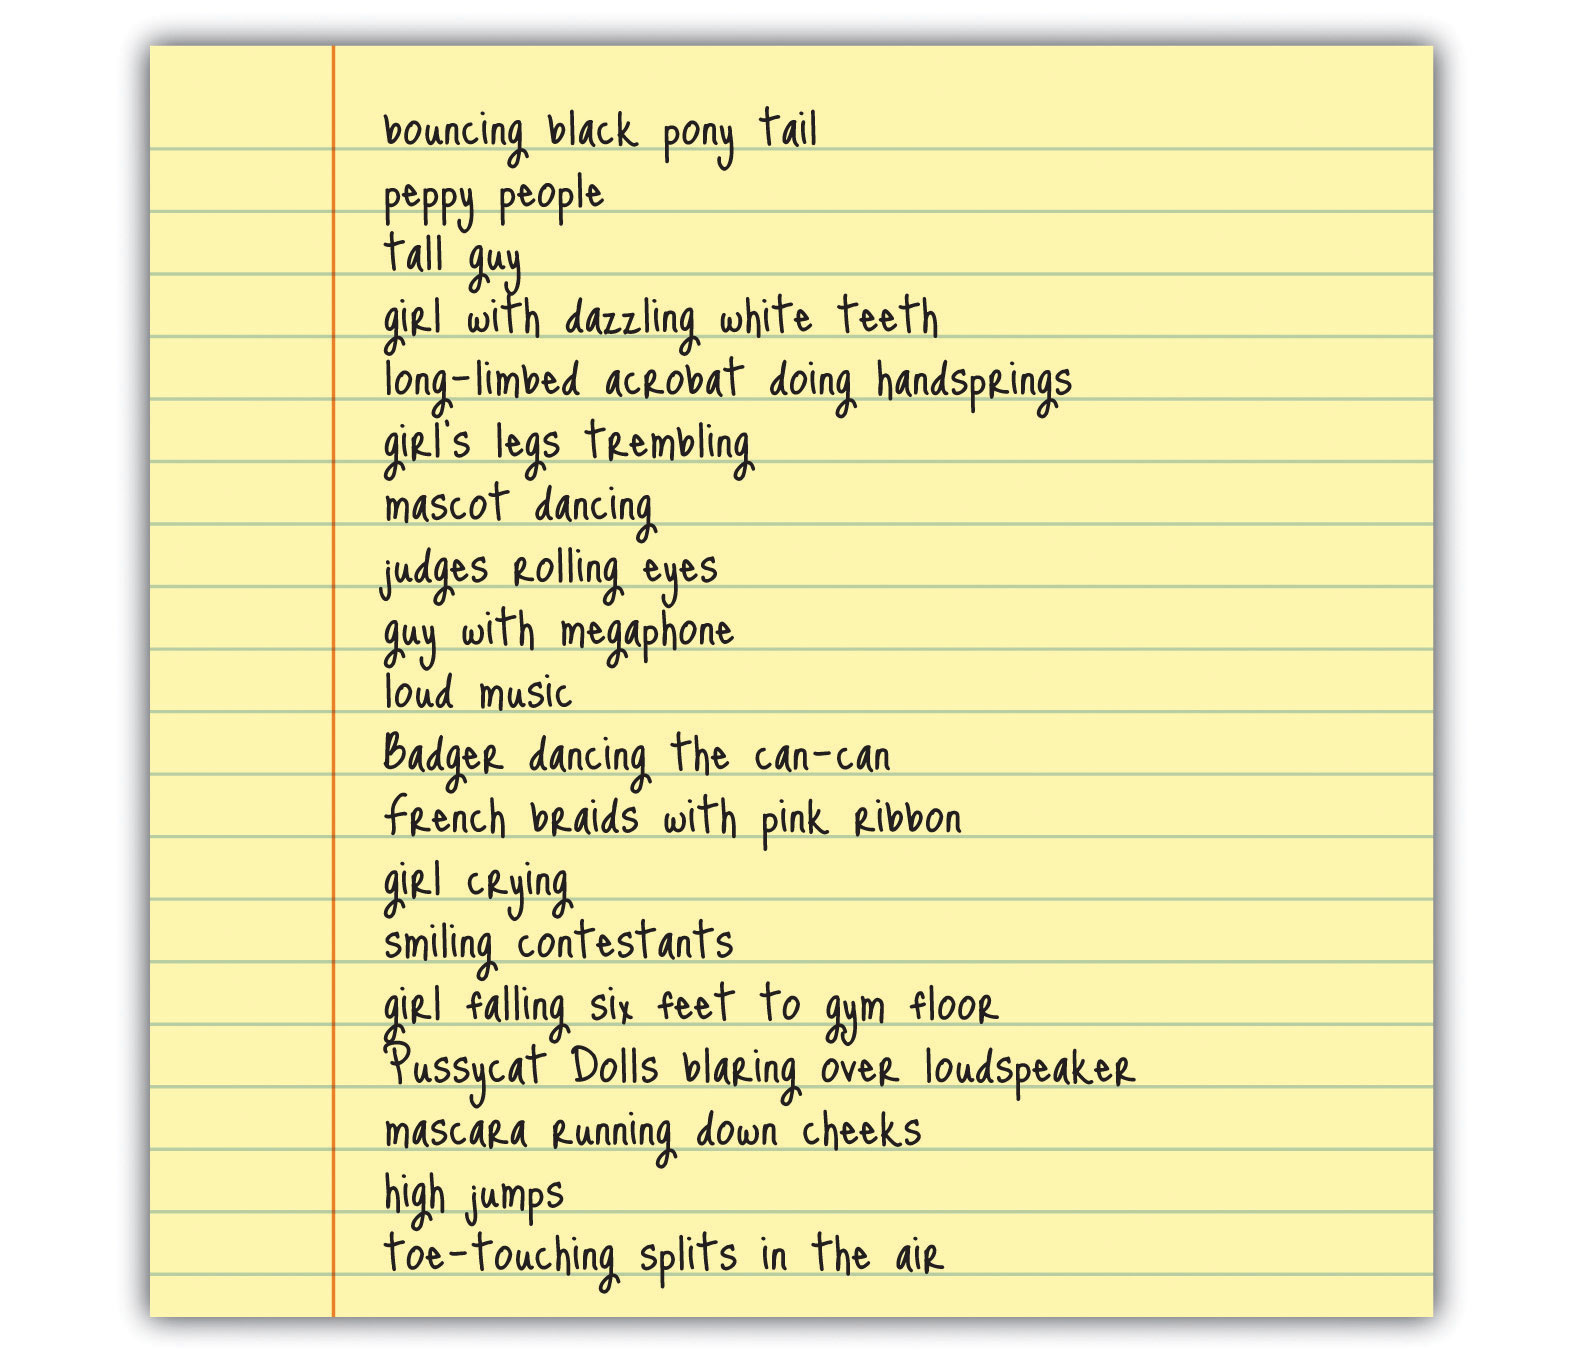 bouncing black pony tail
peppy people
tall guy
girl with dazzling white teeth
long-limbed acrobat doing handsprings
girl's legs trembling
mascot dancing
judges rolling eyes
guy with megaphone
loud music
Badger dancing the can-can
french braids with pink ribbon
girl crying
smiling contestants
girl falling six feet to gym floor
Pussycat Dolls blaring over loudspeaker
mascara running down cheeks
high jumps
toe-touching splits in the air